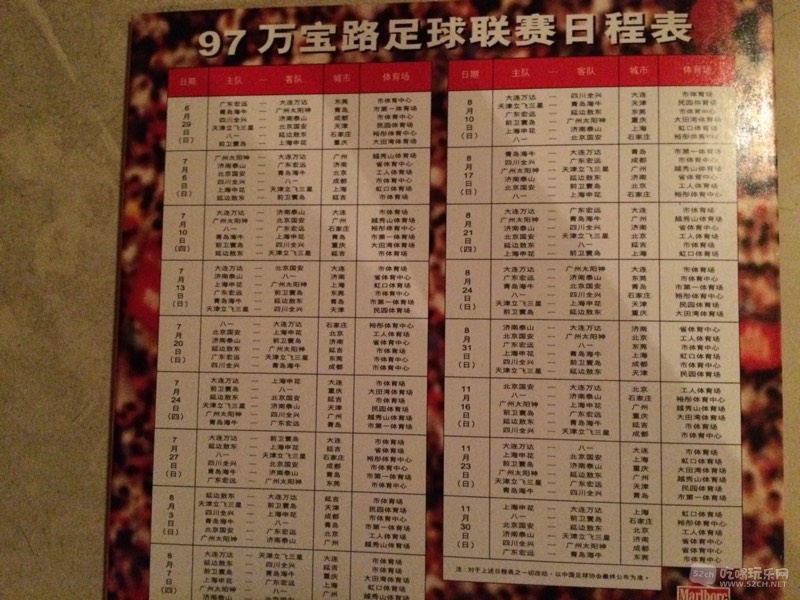 97 万宝路足球联赛日程表
日期 主队 — 客队 城市 体育场
6月29日(日)
广东宏远 — 大连万达 东莞 市体育中心
青岛海牛 — 广州太阳神 青岛 市第一体育场
四川全兴 — 济南泰山 成都 市体育中心
天津立飞三星 — 北京国安 天津 民园体育场
八一 — 延边敖东 石家庄 裕彤体育中心
前卫寰岛 — 上海申花 重庆 大田湾体育场
7月6日(日)
广州太阳神 — 大连万达 广州 越秀山体育场
济南泰山 — 广东宏远 济南 省体育中心
北京国安 — 青岛海牛 北京 工人体育场
四川全兴 — 八一 成都 市体育中心
上海申花 — 天津立飞三星 上海 虹口体育场
延边敖东 — 前卫寰岛 延吉 市体育场
7月10日(四)
大连万达 — 济南泰山 大连 市体育场
广州太阳神 — 北京国安 广州 越秀山体育场
八一 — 广东宏远 石家庄 裕彤体育中心
青岛海牛 — 上海申花 青岛 市第一体育场
前卫寰岛 — 四川全兴 重庆 大田湾体育场
延边敖东 — 天津立飞三星 延吉 市体育场
7月13日(日)
大连万达 — 北京国安 大连 市体育场
济南泰山 — 八一 济南 省体育中心
上海申花 — 广州太阳神 上海 虹口体育场
广东宏远 — 前卫寰岛 东莞 市体育中心
青岛海牛 — 延边敖东 青岛 市第一体育场
天津立飞三星 — 四川全兴 天津 民园体育场
7月20日(日)
八一 — 大连万达 石家庄 裕彤体育中心
北京国安 — 上海申花 北京 工人体育场
济南泰山 — 前卫寰岛 济南 省体育中心
延边敖东 — 广州太阳神 延吉 市体育场
广东宏远 — 天津立飞三星 东莞 市体育中心
四川全兴 — 青岛海牛 成都 市体育中心
7月24日(四)
大连万达 — 上海申花 大连 市体育场
前卫寰岛 — 八一 重庆 大田湾体育场
延边敖东 — 北京国安 延吉 市体育场
天津立飞三星 — 济南泰山 天津 民园体育场
广州太阳神 — 四川全兴 广州 越秀山体育场
青岛海牛 — 广东宏远 青岛 市第一体育场
7月27日(日)
大连万达 — 前卫寰岛 大连 市体育场
上海申花 — 延边敖东 上海 虹口体育场
八一 — 天津立飞三星 石家庄 裕彤体育中心
四川全兴 — 北京国安 成都 市体育中心
青岛海牛 — 济南泰山 青岛 市第一体育场
广东宏远 — 广州太阳神 东莞 市体育中心
8月3日(日)
延边敖东 — 大连万达 延吉 市体育场
天津立飞三星 — 前卫寰岛 天津 民园体育场
四川全兴 — 上海申花 成都 市体育中心
青岛海牛 — 八一 青岛 市第一体育场
北京国安 — 广东宏远 北京 工人体育场
广州太阳神 — 济南泰山 广州 越秀山体育场
8月
大连万达 — 天津立飞三星 大连 市体育场
延边敖东 — 四川全兴 延吉 市体育场
前卫寰岛 — 青岛海牛 重庆 大田湾体育场
上海申花 — 广东宏远 上海 虹口体育场
日期 主队 — 客队 城市 体育场
8月10日(日)
大连万达 — 四川全兴 大连 市体育场
天津立飞三星 — 青岛海牛 天津 民园体育场
广东宏远 — 延边敖东 东莞 市体育中心
前卫寰岛 — 广州太阳神 重庆 大田湾体育场
上海申花 — 济南泰山 上海 虹口体育场
八一 — 北京国安 石家庄 裕彤体育中心
8月17日(日)
青岛海牛 — 大连万达 青岛 市第一体育场
四川全兴 — 广东宏远 成都 市体育中心
广州太阳神 — 天津立飞三星 广州 越秀山体育场
济南泰山 — 延边敖东 济南 省体育中心
北京国安 — 前卫寰岛 北京 工人体育场
八一 — 上海申花 石家庄 裕彤体育中心
8月21日(四)
大连万达 — 广东宏远 大连 市体育场
广州太阳神 — 青岛海牛 广州 越秀山体育场
济南泰山 — 四川全兴 济南 省体育中心
北京国安 — 天津立飞三星 北京 工人体育场
延边敖东 — 八一 延吉 市体育场
上海申花 — 前卫寰岛 上海 虹口体育场
8月24日(日)
大连万达 — 广州太阳神 大连 市体育场
广东宏远 — 济南泰山 东莞 市体育中心
青岛海牛 — 北京国安 青岛 市第一体育场
八一 — 四川全兴 石家庄 裕彤体育中心
天津立飞三星 — 上海申花 天津 民园体育场
前卫寰岛 — 延边敖东 重庆 大田湾体育场
8月31日(日)
济南泰山 — 大连万达 济南 省体育中心
北京国安 — 广州太阳神 北京 工人体育场
广东宏远 — 八一 东莞 市体育中心
上海申花 — 青岛海牛 上海 虹口体育场
四川全兴 — 前卫寰岛 成都 市体育中心
天津立飞三星 — 延边敖东 天津 民园体育场
11月16日(日)
北京国安 — 大连万达 北京 工人体育场
八一 — 济南泰山 石家庄 裕彤体育中心
广州太阳神 — 上海申花 广州 越秀山体育场
前卫寰岛 — 广东宏远 重庆 大田湾体育场
延边敖东 — 青岛海牛 延吉 市体育场
四川全兴 — 天津立飞三星 成都 市体育中心
11月23日(日)
大连万达 — 八一 大连 市体育场
上海申花 — 北京国安 上海 虹口体育场
前卫寰岛 — 济南泰山 重庆 大田湾体育场
广州太阳神 — 延边敖东 广州 越秀山体育场
天津立飞三星 — 广东宏远 天津 民园体育场
青岛海牛 — 四川全兴 青岛 市第一体育场
11月30日(日)
上海申花 — 大连万达 上海 虹口体育场
八一 — 前卫寰岛 石家庄 裕彤体育中心
北京国安 — 延边敖东 北京 工人体育场
济南泰山 — 天津立飞三星 济南 省体育中心
四川全兴 — 广州太阳神 成都 市体育中心
广东宏远 — 青岛海牛 东莞 市体育中心
注：对于上述日程表之一切改动，以中国足球协会最终公布为准。
Marlboro
52ch 吃喝玩乐网
WWW.52CH.NET